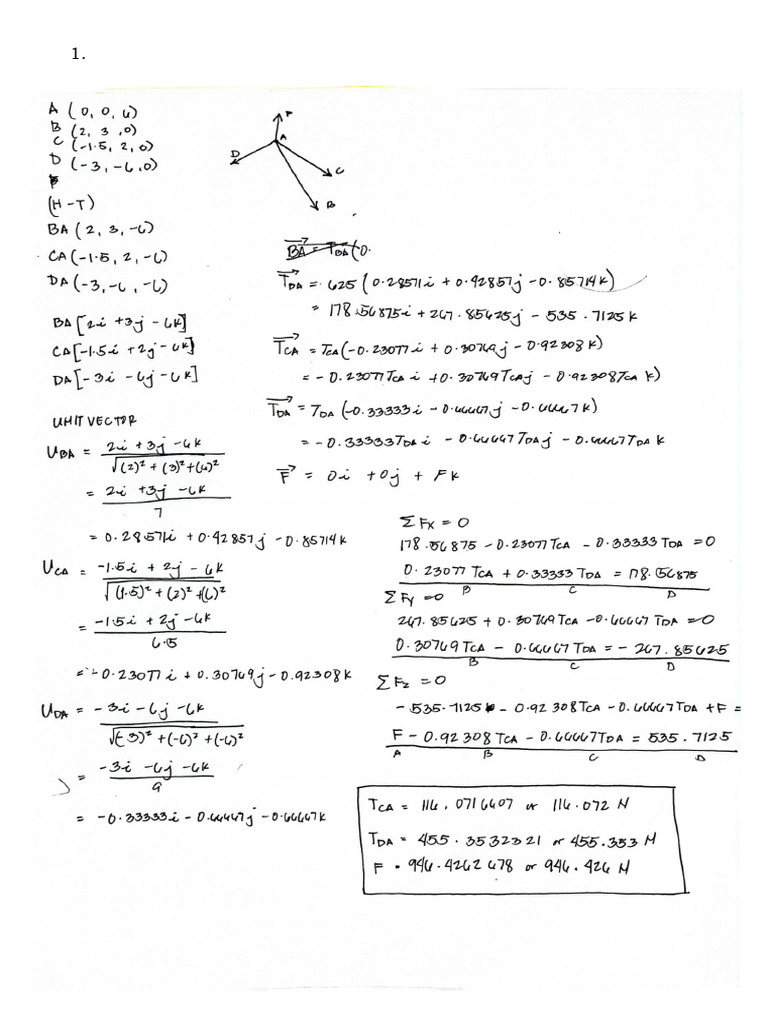 1.
A (0, 0, 6)
B (2, 3, 0)
C (-1.5, 2, 0)
D (-3, -6, 0)
F
(H-T)
BA (2, 3, -6)
CA (-1.5, 2, -6)
DA (-3, -6, -6)
BA [2i + 3j - 6k]
CA [-1.5i + 2j - 6k]
DA [-3i - 6j - 6k]
UNIT VECTOR
U_BA = (2i + 3j - 6k) / √((2)² + (3)² + (6)²
= (2i + 3j - 6k) / 7
= 0.28571i + 0.42857j - 0.85714k
U_CA = (-1.5i + 2j - 6k) / √((1.5)² + (2)² + (6)²
= (-1.5i + 2j - 6k) / 6.5
= -0.23077i + 0.30769j - 0.92308k
U_DA = (-3i - 6j - 6k) / √((-3)² + (-6)² + (-6)²
= (-3i - 6j - 6k) / 9
= -0.33333i - 0.66667j - 0.66667k
F
A
D
C
B
BA = T_BA (0.
T_DA = 625 (0.28571i + 0.42857j - 0.85714k)
= 178.56875i + 267.85625j - 535.7125k
T_CA = T_CA (-0.23077i + 0.30769j - 0.92308k)
= -0.23077 T_CA i + 0.30769 T_CA j - 0.92308 T_CA k)
T_DA = T_DA (-0.33333i - 0.66667j - 0.66667k)
= -0.33333 T_DA i - 0.66667 T_DA j - 0.66667 T_DA k
F = 0i + 0j + Fk
ΣFx = 0
178.56875 - 0.23077 TCA - 0.33333 TDA = 0
0.23077 TCA + 0.33333 TDA = 178.56875
B C D
ΣFy = 0
267.85625 + 0.30769 TCA - 0.66667 TDA = 0
0.30769 TCA - 0.66667 TDA = - 267.85625
B C D
ΣFz = 0
-535.7125 - 0.92308 TCA - 0.66667 TDA + F =
F - 0.92308 TCA - 0.66667 TDA = 535.7125
A B C D
TCA = 116.0716607 or 116.072 N
TDA = 455.3532321 or 455.353 N
F = 946.4262678 or 946.426 N